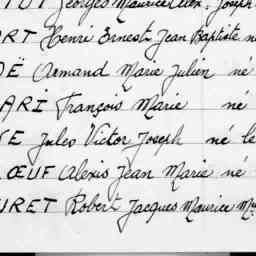 Georges Maurice Alex. Joseph
ORT Henri Ernest Jean Baptiste n
OË Armand Marie Julien né
ARI François Marie né
VE Jules Victor Joseph né le
LOEUF Alexis Jean Marie né
URET Robert Jacques Maurice